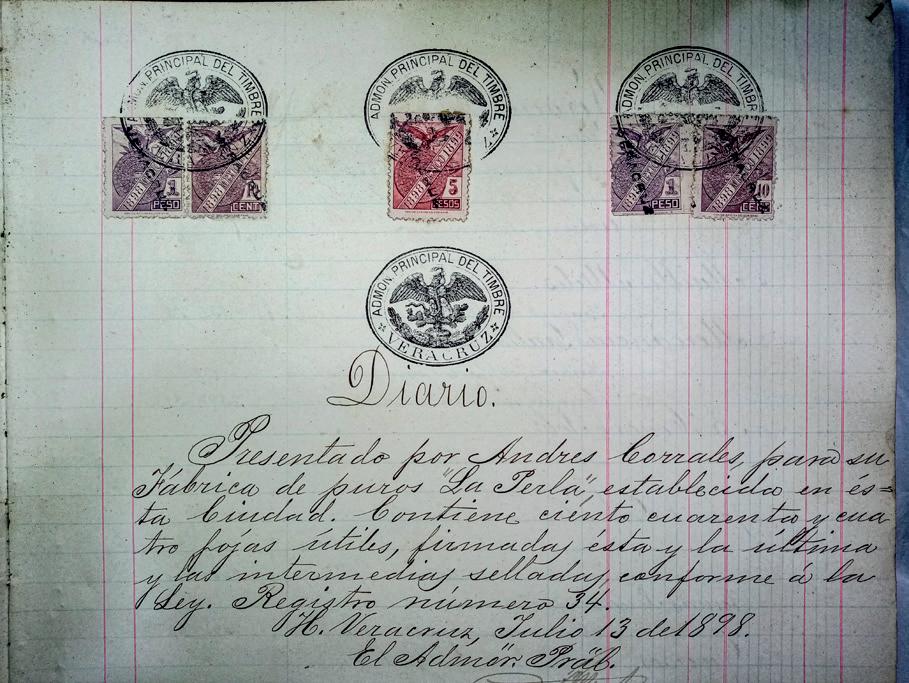 1
ADMON. PRINCIPAL DEL TIMBRE
ADMON. PRINCIPAL DEL TIMBRE
ADMON. PRINCIPAL DEL TIMBRE
1 PESO
CENT
5 PESOS
1 PESO
10 CENT
VERACRUZ
ADMON. PRINCIPAL DEL TIMBRE
VERACRUZ
Diario.
Presentado por Andres Corrales, para su
Fábrica de puros "La Perla", establecida en és=
ta Ciudad. Contiene ciento cuarenta y cua
tro fojas útiles, firmadas ésta y la última
y las intermedias selladas, conforme á la
Ley. Registro número 34.
H. Veracruz, Julio 13 de 1898.
El Admōr. Prãl.